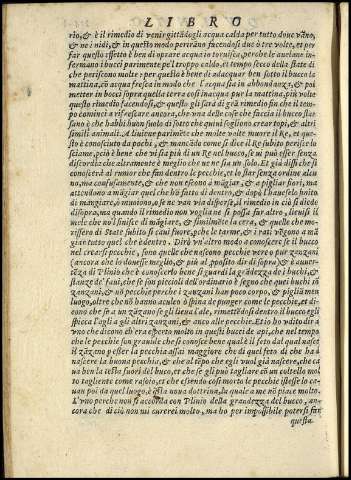 LIBRO
rio, & è il rimedio di venir gittādogli acqua calda per tutto doue vāno,
& ne i nidi, & in questo modo periranno facendosi due ò tre volte, et per
far questo effetto è ben di oprare acqua intorusica, perche le auelane in-
fermano i buchi parimente pe'l troppo caldo. il tempo secco della state di
che periscono molte: per questo è bene di adacquar ben sotto il bucco la
mattina, cō acqua fresca in modo che l'acqua stia in abbondanza, & poi
metter in bocci sopra quella terra così inacquata pur la mattina, più volte
questo rimedio facendosi, & questo gli sarà di grā rimedio fin che il tem-
po cominci a rifrescare ancora, che vna delle cose che faccia il bucco star
sano è che habbi buon suolo di sotto che quiui sogliono crear topi, & altri
simili animali. Auuiene parimēte che molte volte muore il Re, et que-
sto è conosciuto da pochi, & mancādo come si dice il Re subito perisce lo
sciame, però è bene che vi sia più di vn Re nel bucco, se si può esser senza
discordia, che altramente è meglio che ne sia vn solo. Et già dissi che si
conoscerà al rumor che fan dentro le pecchie, et lo star senza ordine alcu-
no, ma confusamente, & che non escono à māgiar, & a pigliar fiori, ma
attendono a māgiar quel che hā fatto di dentro, & dopò l'hauerlo finito
di māngiare, ò muoiono, ò se ne van via disperse, il rimedio in ciò si diede
disopra, ma quando il rimedio non vogliane si possa far altro, leuisi il
mele che non si finisce di māgiare, & similmente la cera, & quelle che mo-
rissero di State subito si caui fuore, pche le tarme, & i rati vēgono a mā-
giar tutto quel che è dentro. Dirò vn'altro modo a conoscere se il bucco
nel crearsi pecchie, fono quelle che nascono pecchie vere o pur zanzani
(ancora che io douesse meglio, & più al posito dir disopra) & è auuer-
tēza di Plinio che è conoscerlo bene si guardi la grādezza de i buchi, &
stanze de' faui, che se son piccioli dell'ordinario è segno che quei buchi nō
zanzani, & nō pecchie perche i zanzani han poco corpo, & piglia men
luogo, oltre che nō hanno aculeo ò spina da punger come le pecchie, et di-
cono che se a un zāzano se gli lieua l'ale, rimettēdosi dentro il bucco egli
spiccal'agli a gli altri zanzani, & anco alle pecchie. Et io ho vdito dir
vno che dicono d'era esperto molto in questi bucchi de api, che nel tempo
che le pecchie son grande che si conosce bene qual è il feto dal qual nasce
il zāzano pesser la pecchia assai maggiore che di quel feto di che ha da
nascere la buona pecchia, & che al tēpo che egli vuol già nascere, che ca-
ua ben la testa fuori del buco, et che se gli può tagliare cō un coltello mol-
to tagliente come rasoio, et che essendo così morto le pecchie istesse lo ca-
uan poi da quel luogo, è sta una dottrina, la quale a me nō piace molto.
L'vno perche non si accorda con Plinio della grandezza del bucco, an-
cora che di ciò non mi curerei molto, ma ho per impossibile potersi far
questa